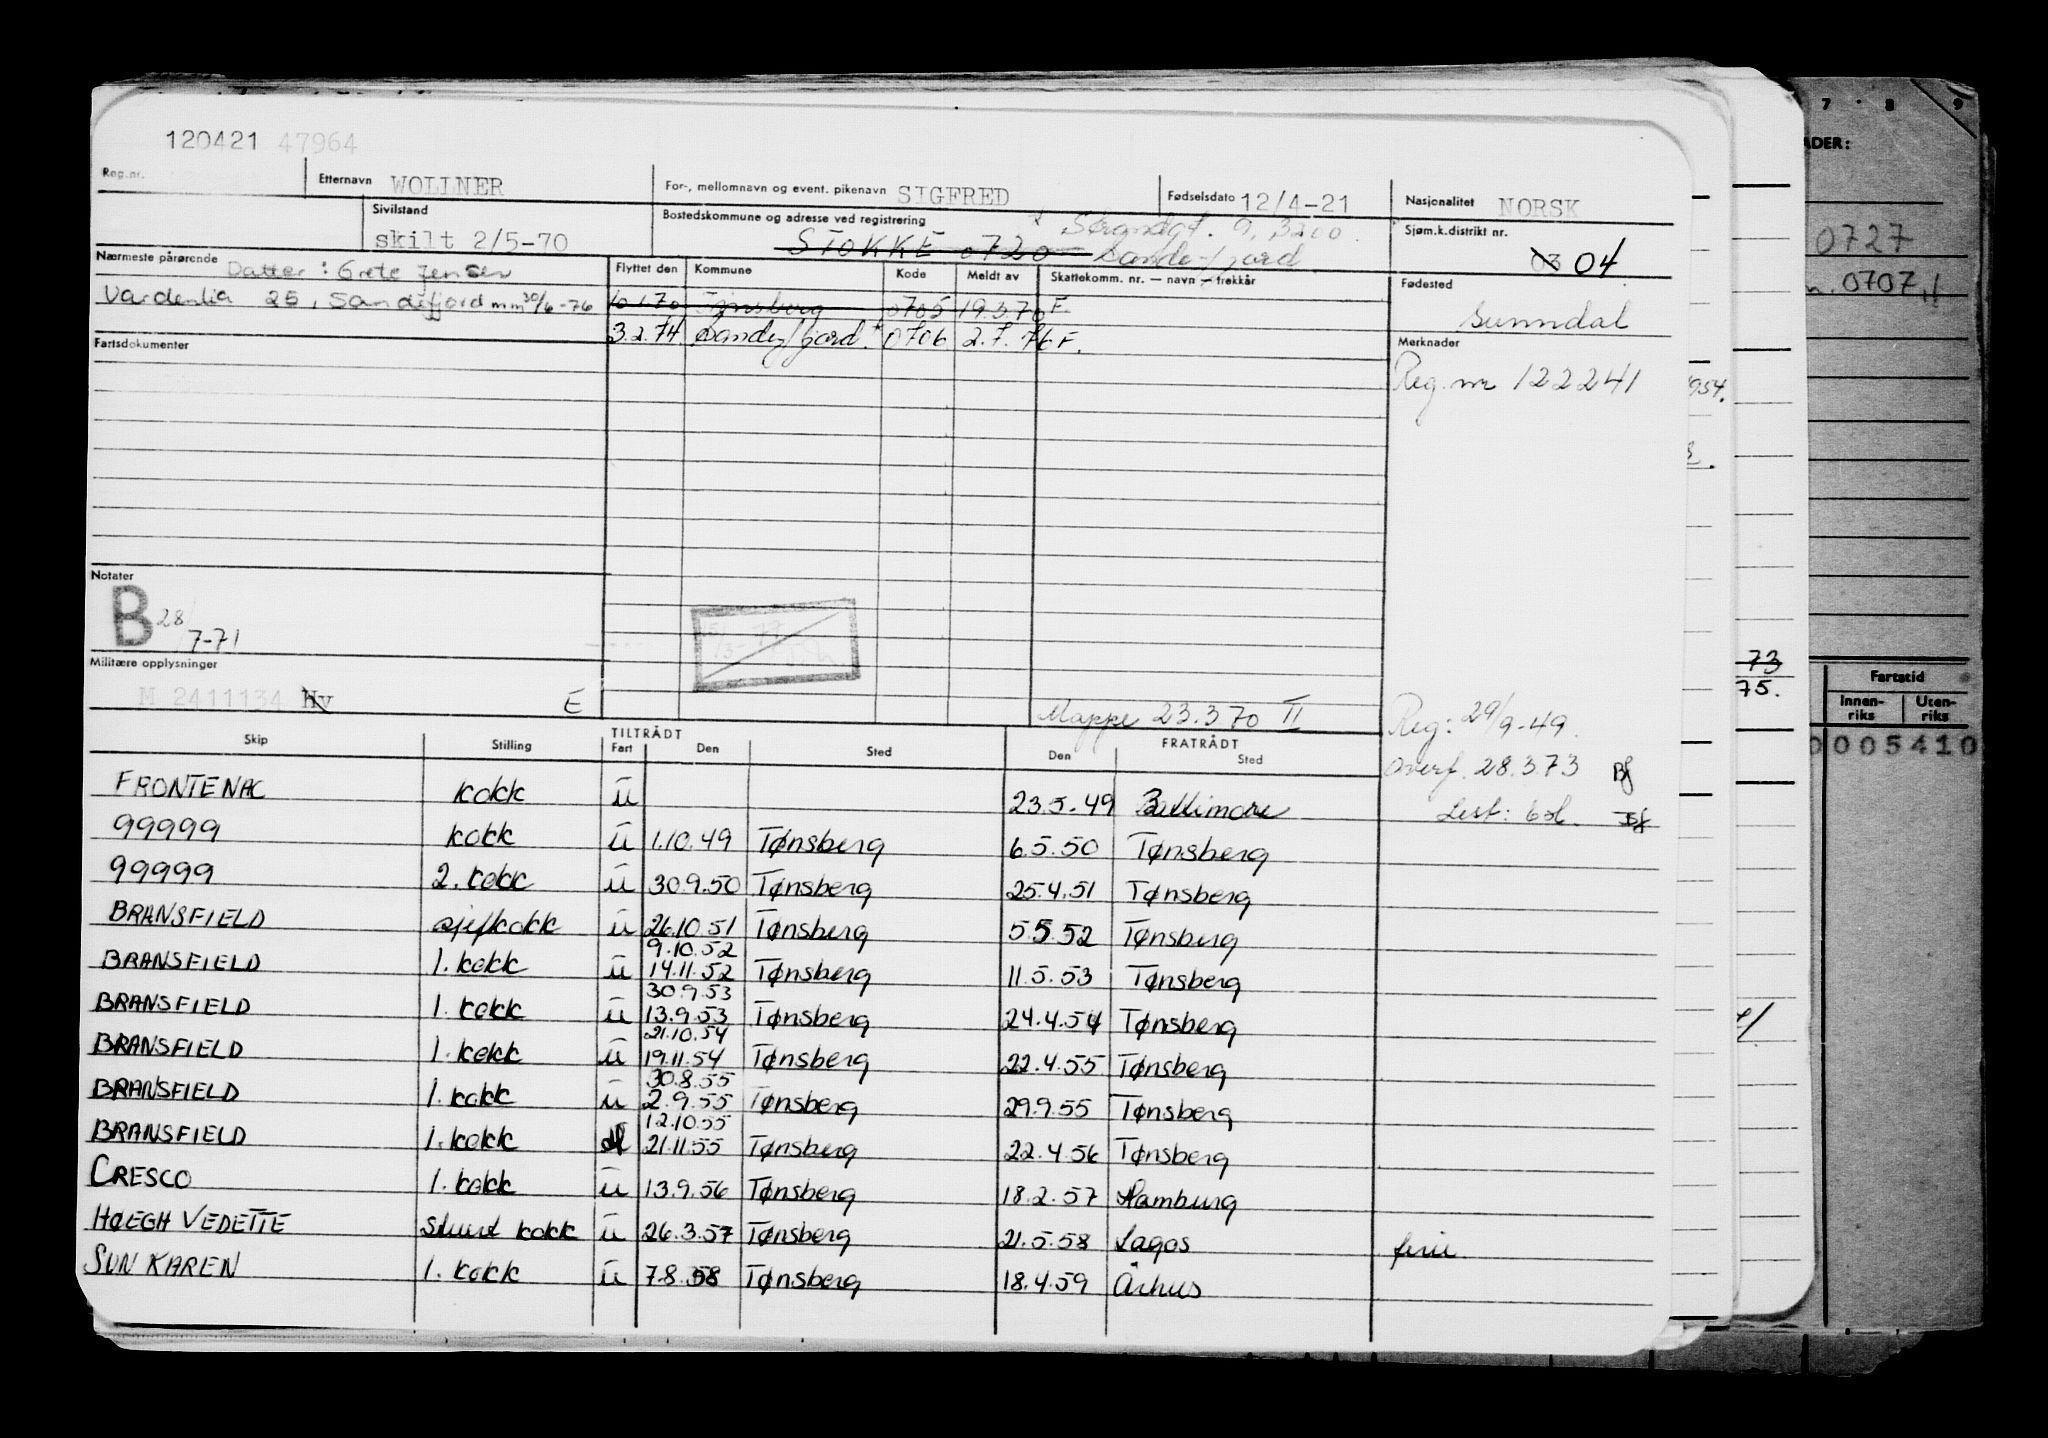 120421 47964
Reg.nr.
Etternavn WOLLNER
For-, mellomnavn og event. pikenavn SIGFRED
Fødselsdato 12/4-21
Nasjonalitet NORSK
Sivilstand
skilt 2/5-70
Bostedskommune og adresse ved registrering
STOKKE 0720
9, 3200
Sandefjord
Sjøm.k.distrikt nr.
03 04
Nærmeste pårørende Datter: Grete Jensen
Vardenlia 25, Sandefjord mm 30/6-76
Flyttet den Kommune Kode Meldt av Skattekomm. nr. — navn — trekkår
10.1.70 Tønsberg 0705 19.3.70 F.
3.2.74 Sandefjord * 0706 2.7.76 F.
Fødested
Sunndal
Fartsdokumenter
Merknader
Reg. nr 122241
Notater
B 28/7-71
Militære opplysninger
M 2411134 Hv E
Mappe 23.3.70 II
Reg: 29/9-49.
Overf. 28.3.73 Bf
Skip Stilling TILTRÅDT Fart Den Sted FRATRÅDT Den Sted
FRONTENAC kokk U 23.5.49 Baltimore
99999 kokk U 1.10.49 Tønsberg 6.5.50 Tønsberg
99999 2. kokk U 30.9.50 Tønsberg 25.4.51 Tønsberg
BRANSFIELD sjefkokk U 26.10.51 Tønsberg 5.5.52 Tønsberg
9.10.52
BRANSFIELD 1. kokk U 14.11.52 Tønsberg 11.5.53 Tønsberg
30.9.53
BRANSFIELD 1. kokk U 13.9.53 Tønsberg 24.4.54 Tønsberg
21.10.54
BRANSFIELD 1. kokk U 19.11.54 Tønsberg 22.4.55 Tønsberg
30.8.55
BRANSFIELD 1. kokk U 2.9.55 Tønsberg 29.9.55 Tønsberg
12.10.55
BRANSFIELD 1. kokk 21.11.55 Tønsberg 22.4.56 Tønsberg
CRESCO 1. kokk U 13.9.56 Tønsberg 18.2.57 Hamburg
HØEGH VEDETTE stuert kokk U 26.3.57 Tønsberg 21.5.58 Lagos ferie
SUN KAREN 1. kokk U 7.8.58 Tønsberg 18.4.59 Århus
7 8 9
ADER:
0727
0707
1954.
73
75.
Fartstid
Innen-riks Uten-riks
0005410